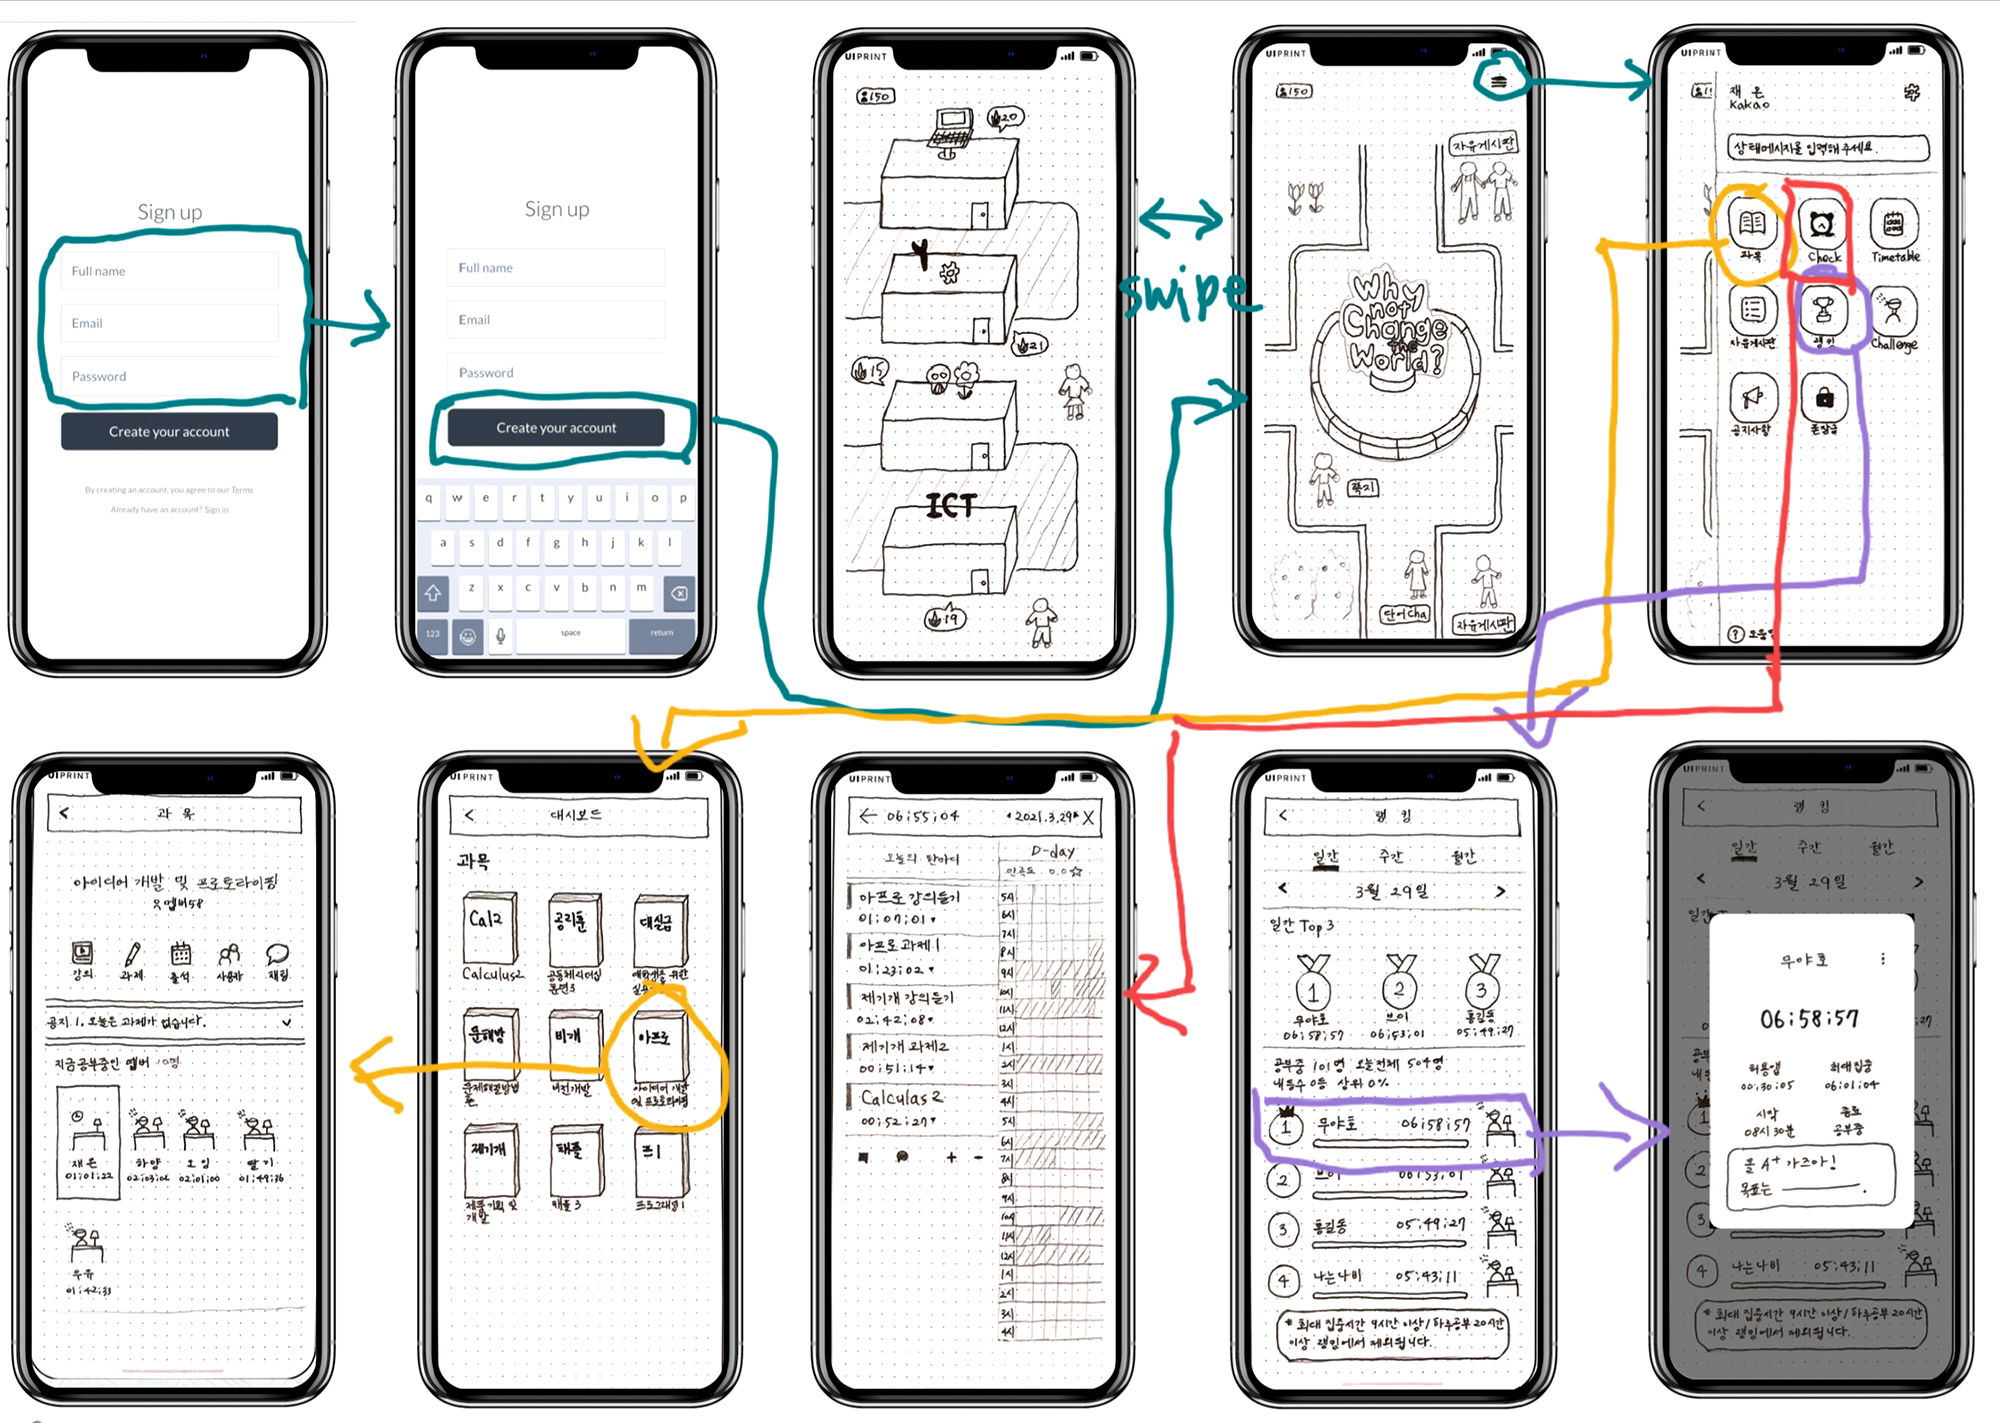 Sign up
Full name
Email
Password
Create your account
By creating an account, you agree to our Terms
Already have an account? Sign in
Sign up
Full name
Email
Password
Create your account
q w e r t y u i o p
a s d f g h j k l
z x c v b n m
123 space return
UIPRINT
150
20
21
15
ICT
19
swipe
UIPRINT
150
자유게시판
Why
not
Change
the
World?
쪽지
단어Cha
자유게시판
UIPRINT
재온
Kakao
상태메시지를 입력해 주세요.
과목 Check Timetable
자유게시판 랭킹 Challenge
공지사항
? 도움말
UIPRINT
< 과목
아이디어 개발 및 프로토타이핑
멤버58
강의 과제 출석 사용자 채팅
공지 1. 오늘은 과제가 없습니다.
지금공부중인 멤버 10명
재온 하양 오잉 딸기
01;01;22 02;03;02 02;01;00 01;49;36
우유
01;42;33
UIPRINT
< 대시보드
과목
Cal2 공리훈 대실금
Calculus2
문해방 비개 아프로
문제해결방법론 비전개발 아이디어 개발 및 프로토타이핑
제기개 채플 프1
제품기획 및 개발 채플 3 프로그래밍1
UIPRINT
← 06;55;04 2021.3.29 X
오늘의 한마디 D-day
만족도 0.0☆
아프로 강의듣기
01;07;01
아프로 과제1
01;23;02
제기개 강의듣기
02;42;08
제기개 과제2
00;51;14
Calculas 2
00;52;27
+ -
5시
6시
7시
8시
9시
10시
11시
12시
1시
2시
3시
4시
5시
6시
7시
8시
9시
10시
11시
12시
1시
2시
3시
4시
UIPRINT
< 랭킹
일간 주간 월간
< 3월 29일 >
일간 Top 3
1 2 3
무야호 브이 홍길동
06;58;57 06;53;01 05;49;27
공부중 101명 오늘전체 504명
내등수 0등 상위 0%
1 무야호 06;58;57
2 브이 06;53;01
3 홍길동 05;49;27
4 나는나비 05;43;11
* 최대 집중시간 9시간 이상/하루공부 20시간
이상 랭킹에서 제외됩니다.
UIPRINT
< 랭킹
일간 주간 월간
< 3월 29일 >
무야호
06;58;57
허용앱 최대집중
00;30;05 06;01;04
시작 종료
08시 30분 공부중
올 A+ 가즈아!
목표는 ________.
4 나는나비 05;43;11
* 최대 집중시간 9시간 이상/하루공부 20시간
이상 랭킹에서 제외됩니다.